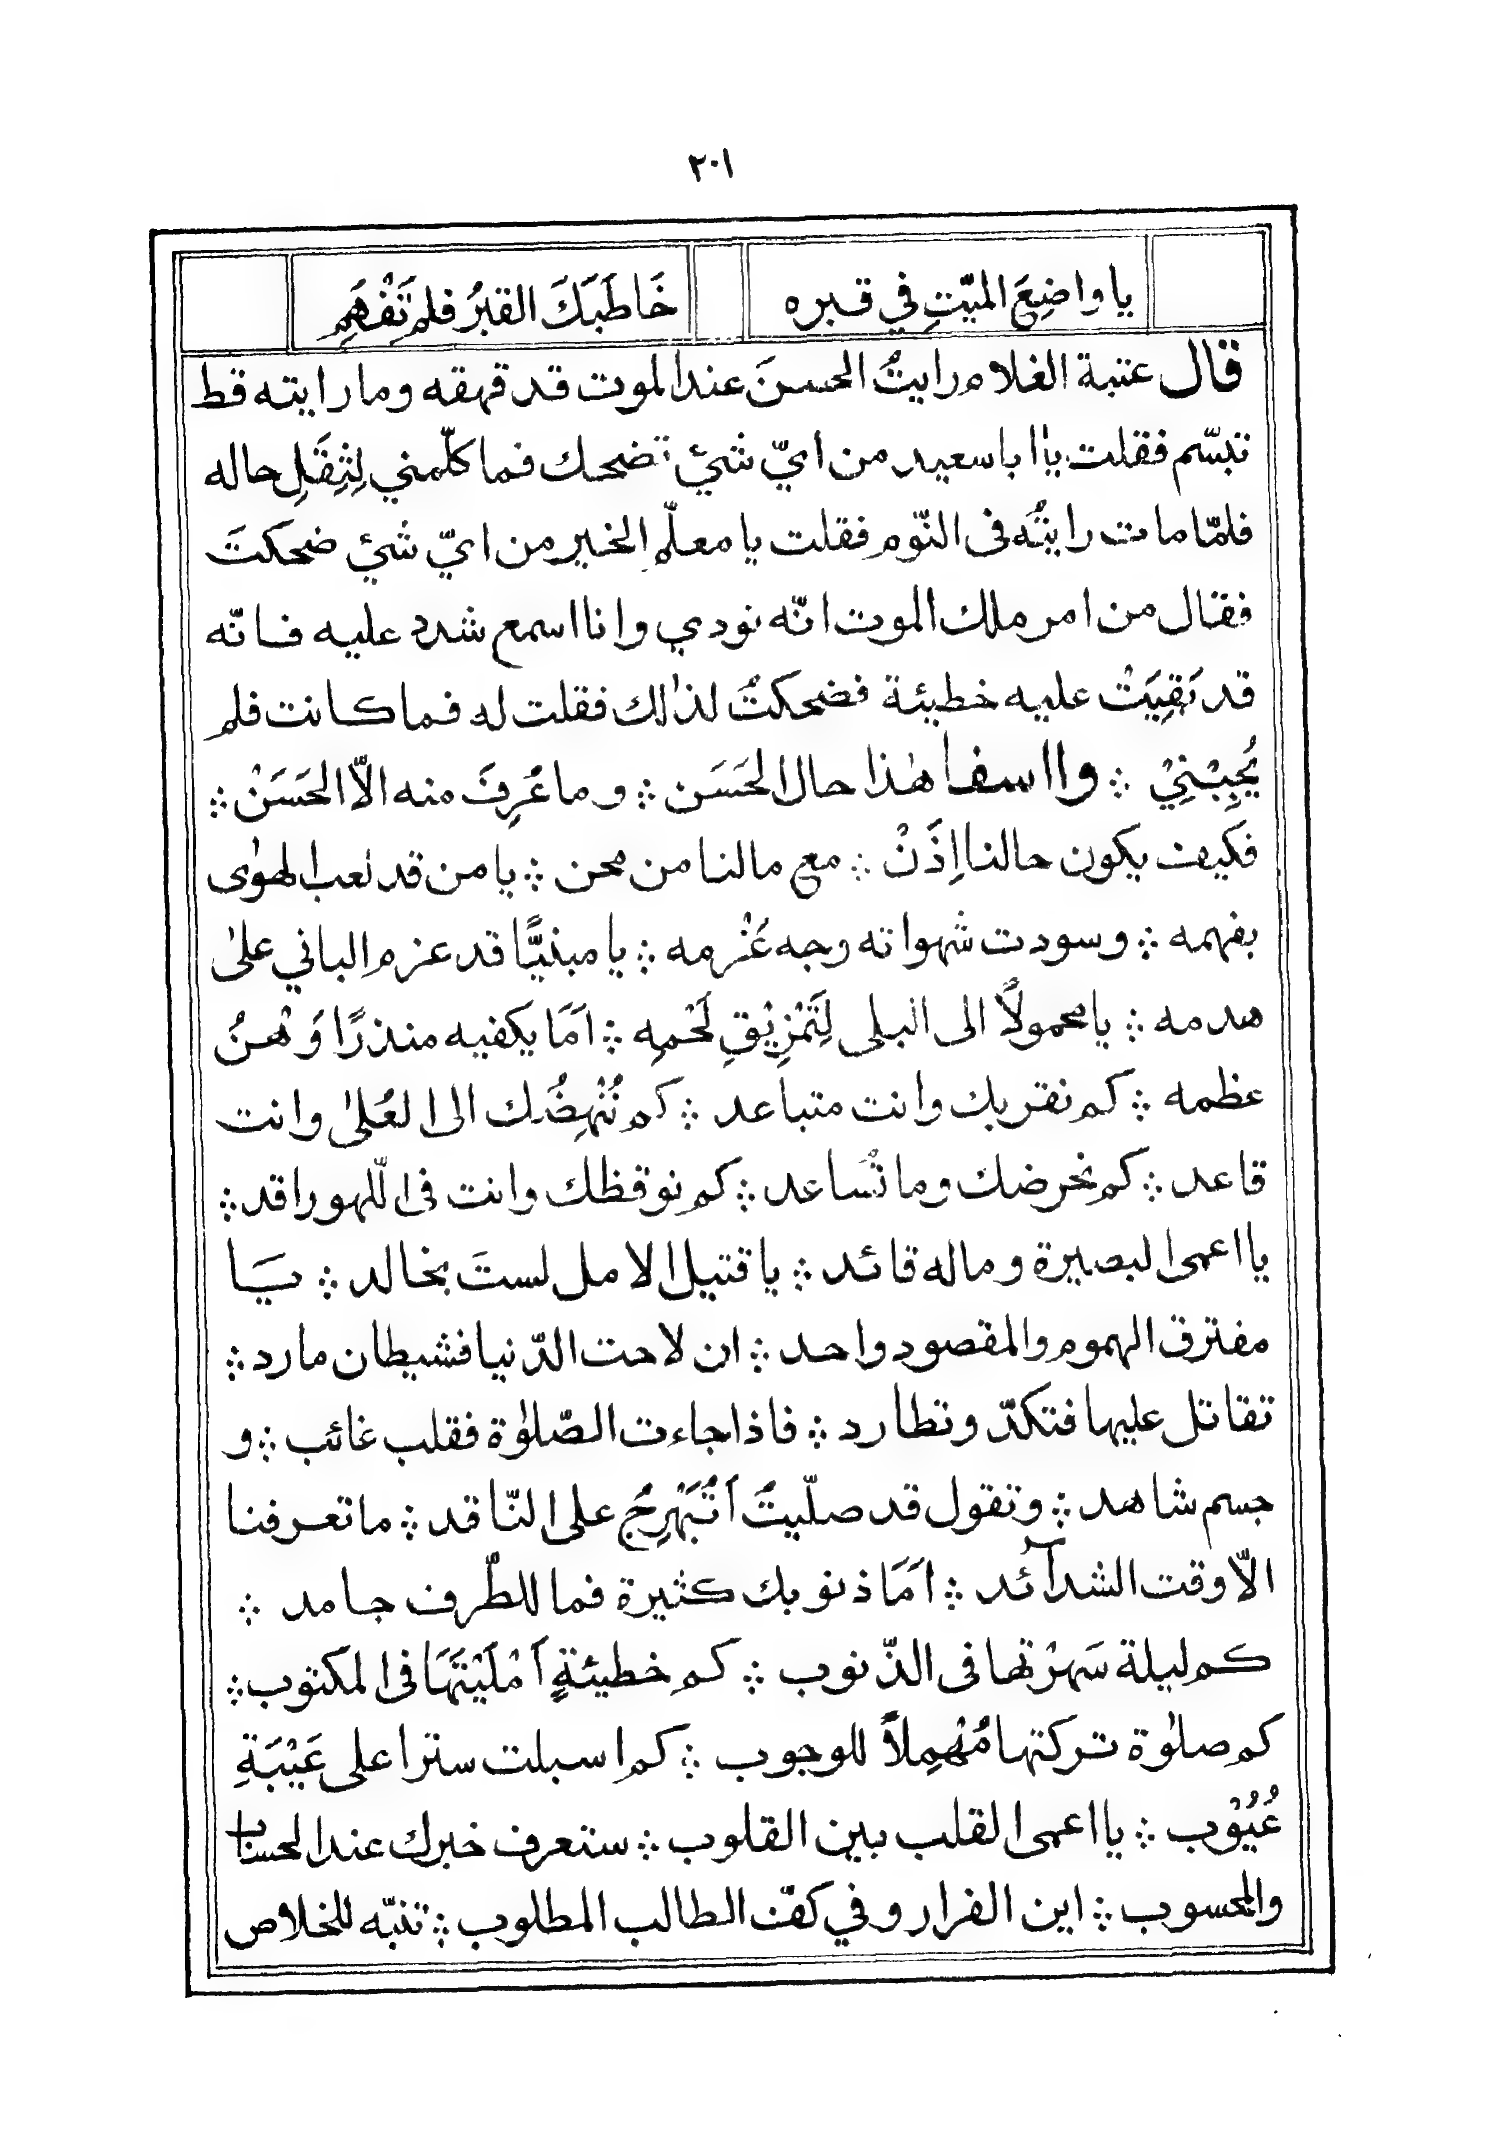 ٢٠١
يا واضِعَ الميّتِ في قبره خَاطَبَكَ القبرُ فلم تَفْهَمِ
قال عتبة الغلام رايتُ الحسنَ عند الموت قد قهقه وما رايته قط
تبسّم فقلت يا ابا سعيد من ايّ شئ تضحك فما كلّمني لِثِقَلِ حاله
فلمّا مات رايتُه فى النّوم فقلت يا معلّم الخير من ايّ شئ ضحكتَ
فقال من امر ملك الموت انّه نودي وانا اسمع شدد عليه فانّه
قد بَقِيَتْ عليه خطيئة فضحكتُ لذٰلك فقلت له فما كانت فلم
يُجِبْنِيْ ؞ وااسفا هٰذا حال الحَسَن ؞ وما عُرِفَ منه الّا الحَسَنْ ؞
فكيف يكون حالنا اِذَنْ ؞ مع مالنا من محن ؞ يا من قد لعب الهوٰى
بفهمه ؞ وسودت شهواته وجه عَزْمه ؞ يا مبنيًّا قد عزم الباني علىٰ
هدمه ؞ يا محمولًا الى البلى لِتَمْزِيْقِ لَحْمِه ؞ اَمَا يكفيه منذرًا وَهْنُ
عظمه ؞ كم نقربك وانت متباعد ؞ كم نُنْهِضُك الى العُلىٰ وانت
قاعد ؞ كم نحرضك وما تُساعد ؞ كم نوقظك وانت فى اللّهو راقد ؞
يا اعمى البصيرة وماله قائد ؞ يا قتيل الامل لستَ بخالد ؞ يَا
مفترق الهموم والمقصود واحد ؞ ان لاحت الدّنيا فشيطان مارد ؞
تقاتل عليها فتكدّ وتطارد ؞ فاذا جاءت الصّلوٰة فقلب غائب ؞ و
جسم شاهد ؞ وتقول قد صلّيتُ اَتُبَهْرِجُ على النّاقد ؞ ما تعرفنا
الّا وقت الشدآئد ؞ اَمَا ذنوبك كثيرة فما للطّرف جامد ؞
كم ليلة سَهِرْتها فى الذّنوب ؞ كم خطيئةٍ اَمْلَيْتَهَا فى المكتوب ؞
كم صلوٰة تركتها مُهْمِلاً للوجوب ؞ كم اسبلت سترا على عَيْبَةِ
عُيُوْب ؞ يا اعمى القلب بين القلوب ؞ ستعرف خبرك عند الحساب
والمحسوب ؞ اين الفرار وفي كفّ الطالب المطلوب ؞ تنبّه للخلاص